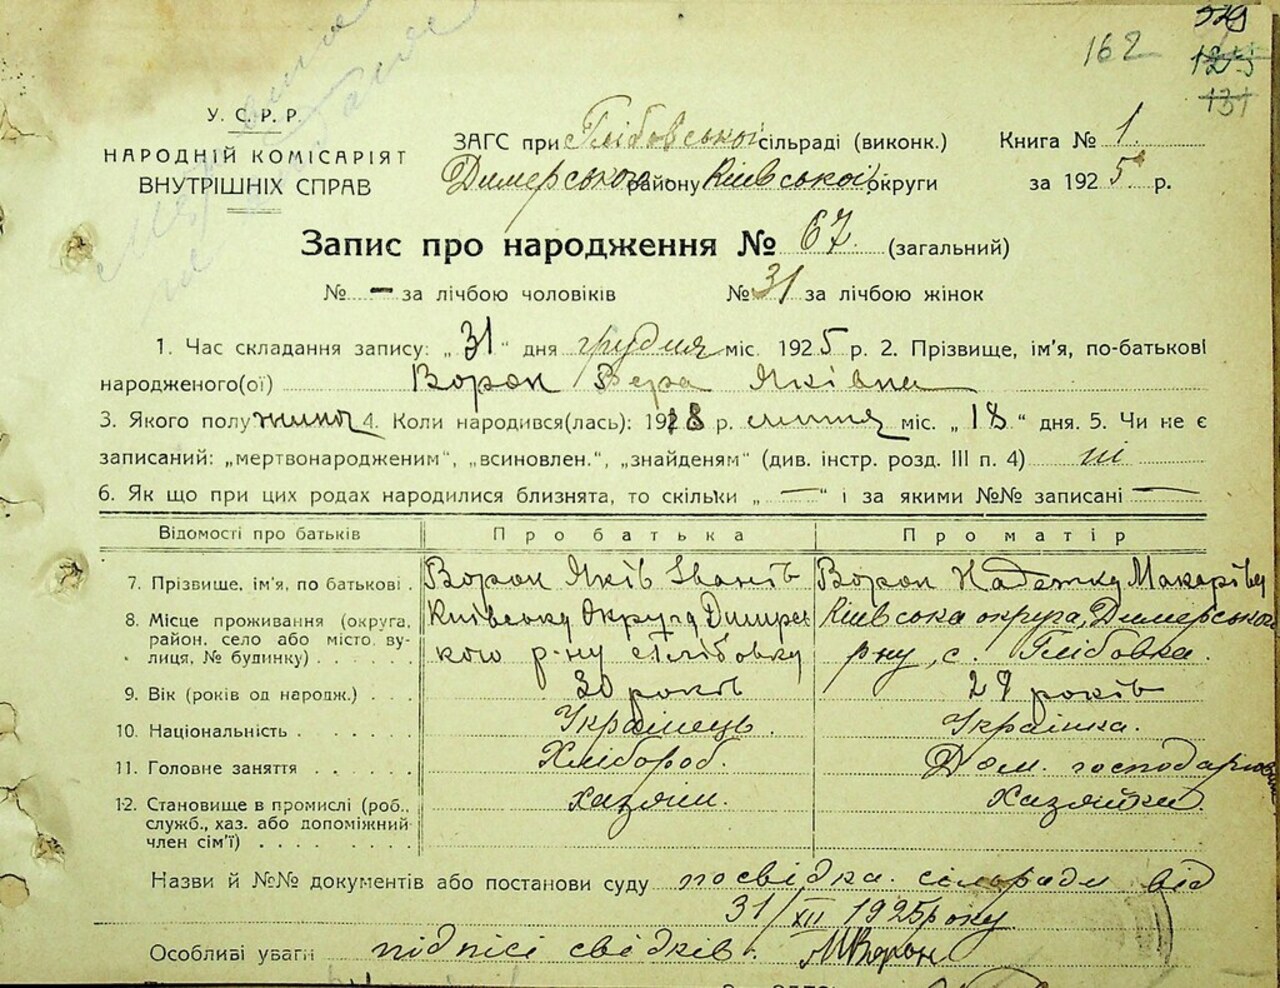 329
162
125
131
У. С. Р. Р.
НАРОДНІЙ КОМІСАРІЯТ
ВНУТРІШНІХ СПРАВ
ЗАГС при Глібовської сільраді (виконк.)
Димерського району Київської округи
Книга № 1
за 1925 р.
Запис про народження № 67 (загальний)
№ — за лічбою чоловіків № 31 за лічбою жінок
1. Час складання запису: „31" дня грудня міс. 1925 р. 2. Прізвище, ім'я, по-батькові
народженого(ої) Ворон Вера Яківна
3. Якого полу жиноч 4. Коли народився(лась): 1918 р. липня міс. „18" дня. 5. Чи не є
записаний: „мертвонародженим", „всиновлен.", „знайденям" (див. інстр. розд. III п. 4) ні
6. Як що при цих родах народилися близнята, то скільки „—" і за якими №№ записані —
Відомості про батьків Про батька Про матір
7. Прізвище, ім'я, по батькові . Ворон Яків Іванів Ворон Надежда Макарівна
8. Місце проживання (округа, Київська Округа Димерс Київська округа, Димерського
район, село або місто, вулиця, № будинку) кого р-ну с Глібовка р-ну, с. Глібовка.
9. Вік (років од народж.) 30 років 29 років
10. Національність Українець. Українка.
11. Головне заняття Хлібороб. Дом. господарюв
12. Становище в промислі (роб., хазяин. Хазяйка.
служб., хаз. або допоміжний
член сім'ї)
Назви й №№ документів або постанови суду посвідка сільради від
31/XII 1925 року
Особливі уваги підпісі свідків. Ворон